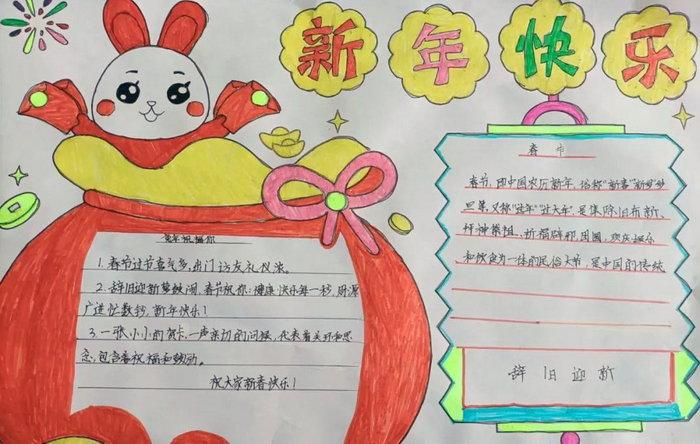 新年快乐
兔年祝福你
1.春节过节喜气多,出门访友礼仪浓。
2.辞旧迎新锣鼓闹,春节祝你:健康快乐每一秒,财源
广进忙数钞,新年快乐!
3.一张小小的贺卡,一声亲切的问候,代表着关怀和思
念,包含着祝福和鼓励。
祝大家新春快乐!
春节
春节,即中国农历新年,俗称"新春""新岁"岁
旦等,又称"过年""过大年",是集除旧布新、
拜神祭祖、祈福辟邪、团圆、欢庆娱乐
和饮食为一体的民俗大节,是中国的传统
辞旧迎新